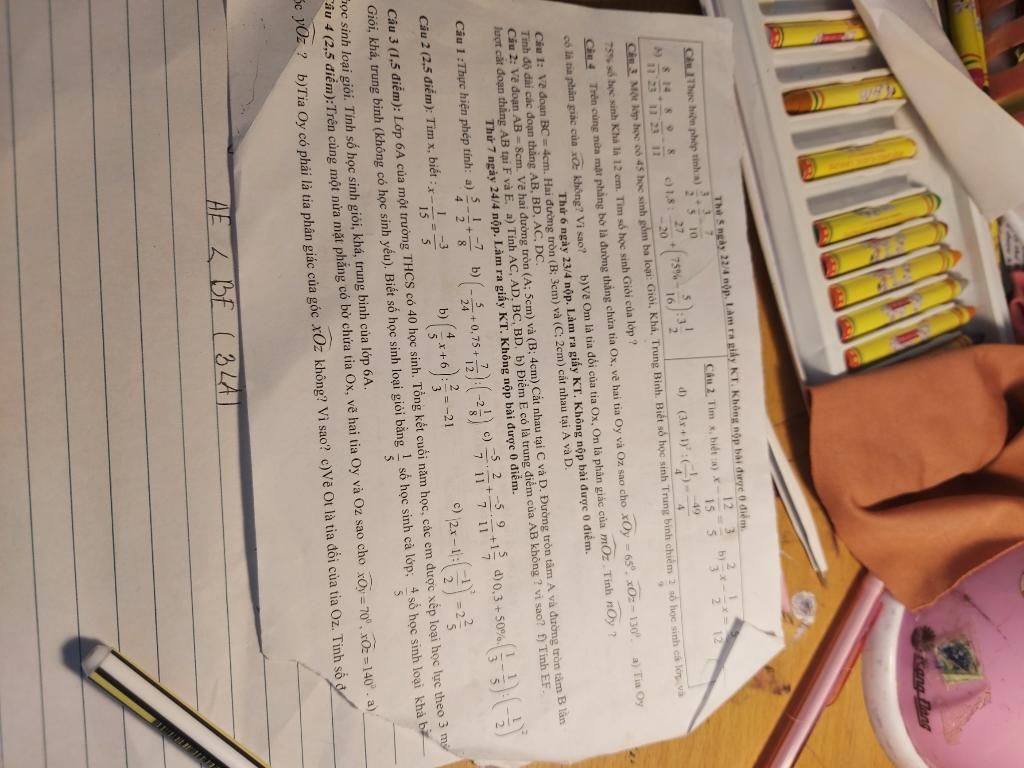 Thứ 5 ngày 22/4 nộp. Làm ra giấy KT. Không nộp bài được 0 điểm.
Câu 1 Thực hiện phép tính: a) 3/2 + 3/5 - 7/10
b) 8/11 . 14/23 + 8/11 . 9/23 - 8/11 c) 1,8 : 27/-20 + (75% - 5/16) : 3 1/2
Câu 2. Tìm x, biết: a) x - 12/15 = 3/5 b) 2/3 x - 1/2 x = 5/12
d) (3x + 1)² : (-1/4) = -49/4
Câu 3. Một lớp học có 45 học sinh gồm ba loại: Giỏi, Khá, Trung Bình. Biết số học sinh Trung bình chiếm 2/9 số học sinh cả lớp và
75% số học sinh Khá là 12 em. Tìm số học sinh Giỏi của lớp ?
Câu 4 Trên cùng nửa mặt phẳng bờ là đường thẳng chứa tia Ox, vẽ hai tia Oy và Oz sao cho xOy = 65⁰, xOz = 130⁰. a) Tia Oy
có là tia phân giác của xOz không? Vì sao? b) Vẽ Om là tia đối của tia Ox, On là phân giác của mOz. Tính nOy ?
Thứ 6 ngày 23/4 nộp. Làm ra giấy KT. Không nộp bài được 0 điểm.
Câu 1: Vẽ đoạn BC = 4cm. Hai đường tròn (B; 3cm) và (C; 2cm) cắt nhau tại A và D.
Tính độ dài các đoạn thẳng AB, BD, AC, DC.
Câu 2: Vẽ đoạn AB = 8cm. Vẽ hai đường tròn (A; 5cm) và (B; 4cm) Cắt nhau tại C và D. Đường tròn tâm A và đường tròn tâm B lần
lượt cắt đoạn thẳng AB tại F và E. a) Tính AC, AD, BC, BD. b) Điểm E có là trung điểm của AB không ? vì sao? f) Tính EF.
Thứ 7 ngày 24/4 nộp. Làm ra giấy KT. Không nộp bài được 0 điểm.
Câu 1 :Thực hiện phép tính: a) 5/4 - 1/2 + -7/8 b) (-5/24 + 0,75 + 7/12) : (-2 1/8) c) -5/7 . 2/11 + -5/7 . 9/11 + 1 5/7 d) 0,3 + 50%.(1/3 - 1/5) : (-1/2)²
Câu 2 (2,5 điểm): Tìm x, biết : x - 1/15 = -3/5 b) (4/5 x + 6) : 2/3 = -21 c) |2x - 1| : (-1/2)² = 2 2/5
Câu 3 (1,5 điểm): Lớp 6A của một trường THCS có 40 học sinh. Tổng kết cuối năm học, các em được xếp loại học lực theo 3
Giỏi, khá, trung bình (không có học sinh yếu). Biết số học sinh loại giỏi bằng 1/5 số học sinh cả lớp; 4/5 số học sinh loại khá
học sinh loại giỏi. Tính số học sinh giỏi, khá, trung bình của lớp 6A.
Câu 4 (2,5 điểm):Trên cùng một nửa mặt phẳng có bờ chứa tia Ox, vẽ hai tia Oy và Oz sao cho xOy = 70⁰, xOz = 140⁰. a)
yOz ? b)Tia Oy có phải là tia phân giác của góc xOz không? Vì sao? c)Vẽ Ot là tia đối của tia Oz. Tính số
AE < BF (3
Kang-Dang